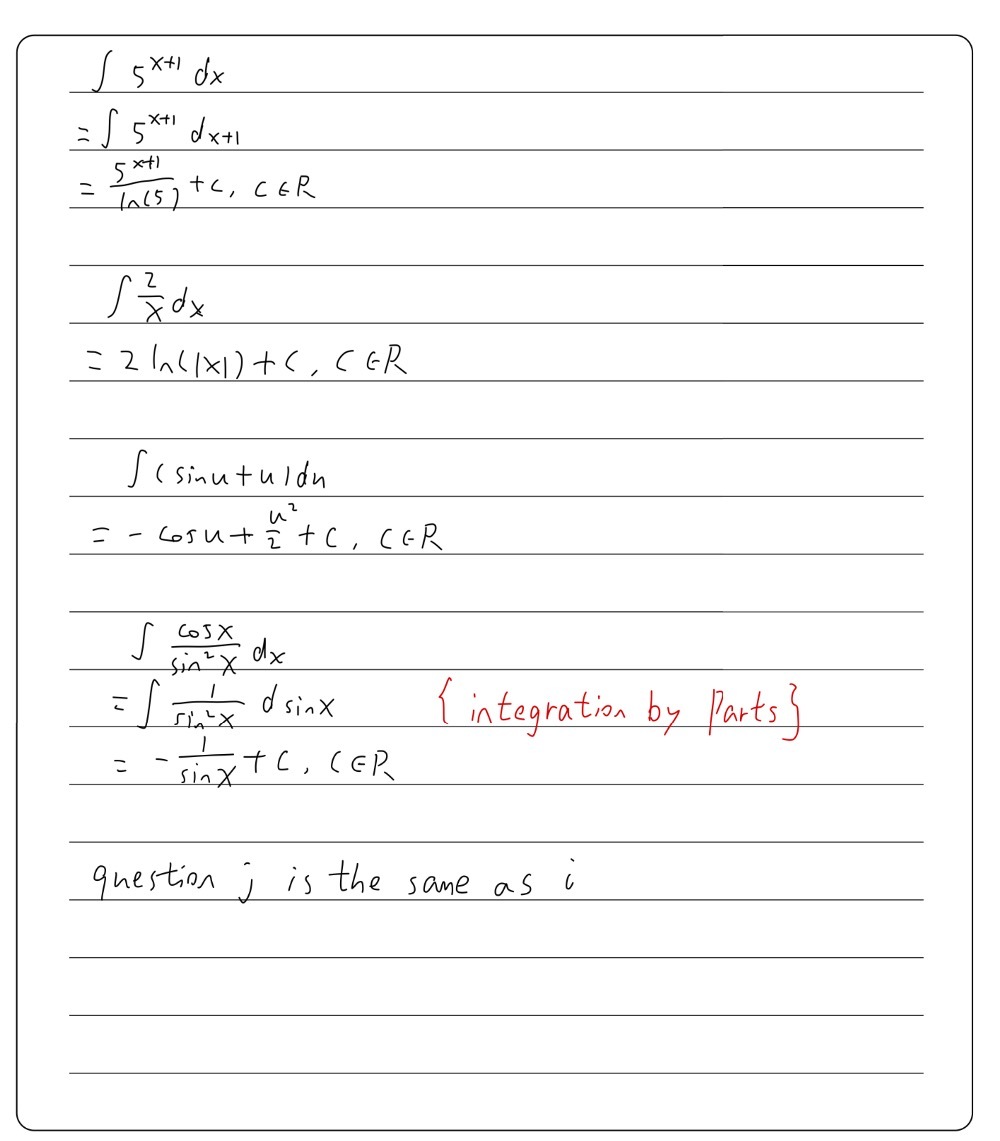 ∫ 5^{x+1} dx
= ∫ 5^{x+1} d_{x+1}
= \frac{5^{x+1}}{ln(5)} + C, C ∈ R
∫ \frac{2}{x} dx
= 2 ln(|x|) + C, C ∈ R
∫ (sin u + u) du
= - cos u + \frac{u^2}{2} + C, C ∈ R
∫ \frac{cos x}{sin^2 x} dx
= ∫ \frac{1}{sin^2 x} d sin x { integration by Parts }
= - \frac{1}{sin x} + C, C ∈ R
question j is the same as i